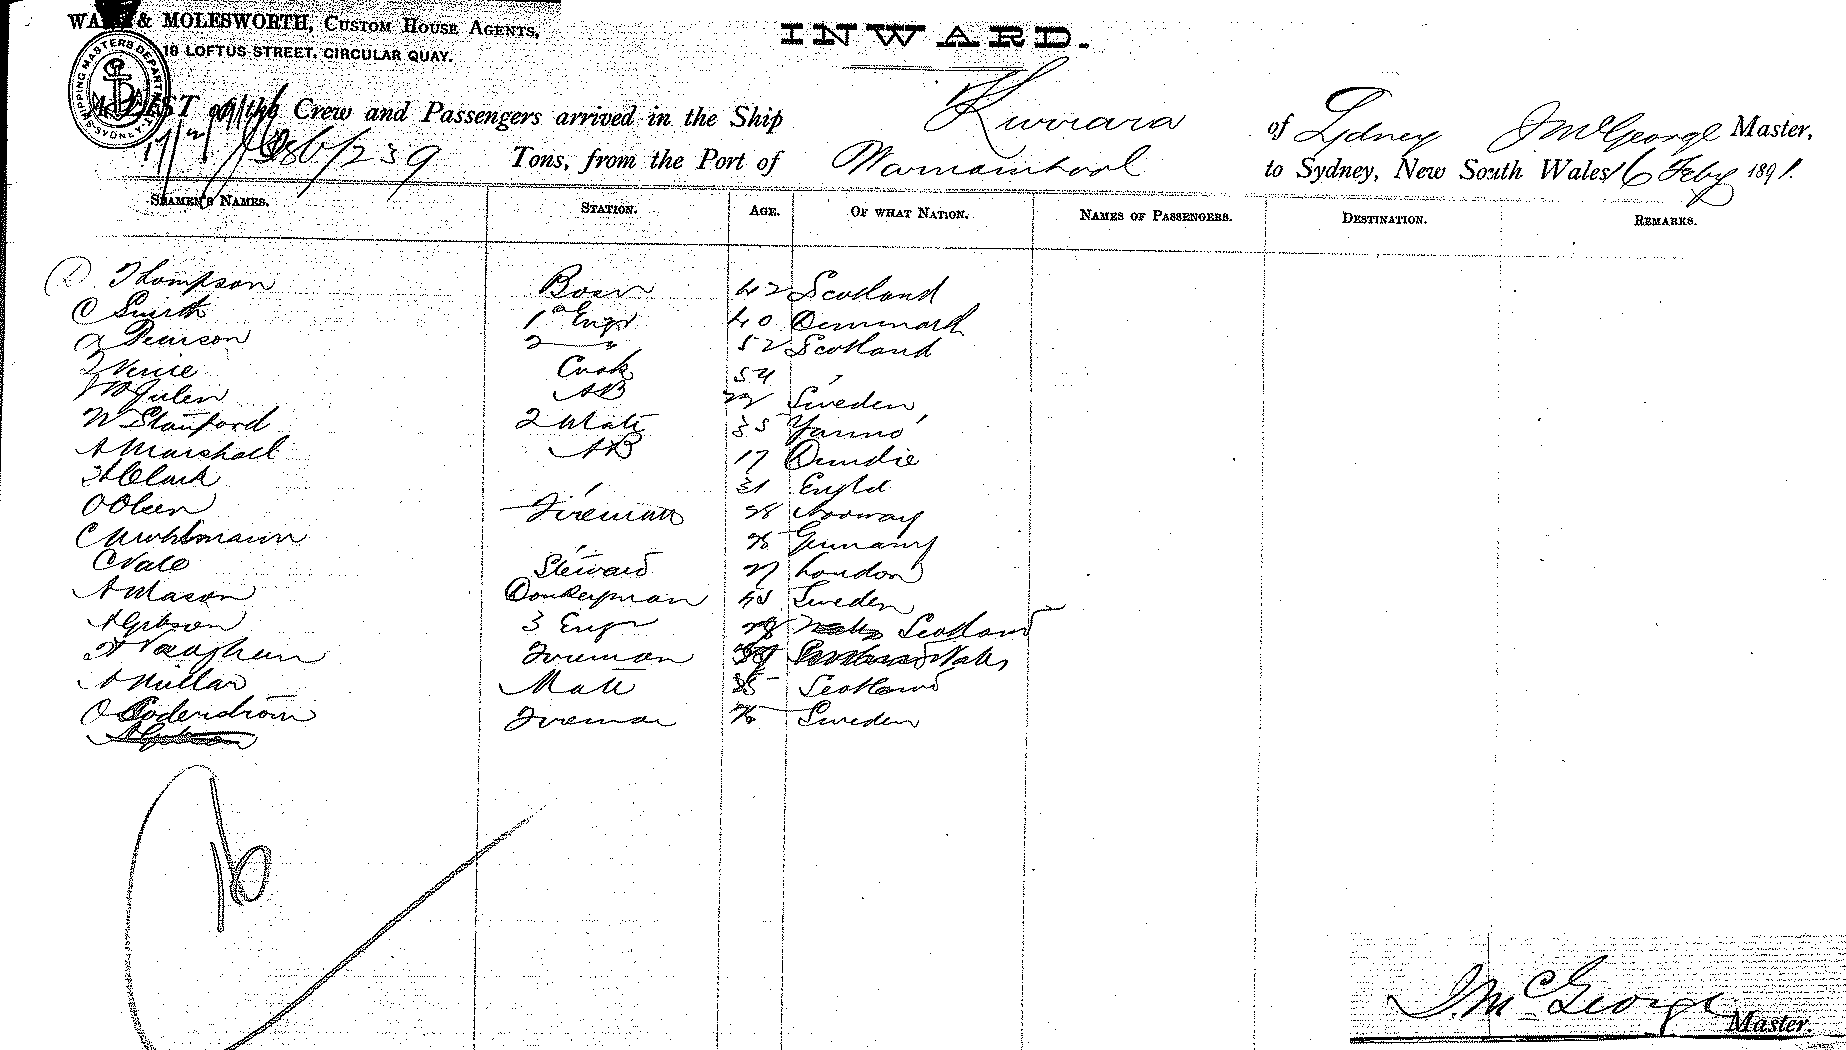 & MOLESWORTH, CUSTOM HOUSE AGENTS,
18 LOFTUS STREET, CIRCULAR QUAY.
INWARD.
SHIPPING MASTERS DEPARTMENT SYDNEY
LIST of the Crew and Passengers arrived in the Ship of Sydney J McGeorge Master,
239 Tons, from the Port of Warrnambool to Sydney, New South Wales 16 Feby 1891.
SEAMEN'S NAMES. STATION. AGE. OF WHAT NATION. NAMES OF PASSENGERS. DESTINATION. REMARKS.
Thompson Bosn 42 Scotland
C Smith 1st Engr 40 Denmark
Pearson 2 " 52 Scotland
Cook 54 "
AB Sweden
W Stanford 2 Mate 35
A Marshall AB 17 Dundie
H Clark " 31 Engld
O Olsen Fireman 28 Norway
C " 26 Germany
C Vale Steward 27 London
A Mason Donkeyman Sweden
A Gibson 3 Engr 28 Scotland
H Vaughan Fireman Wales
A Millar Mate 35 Scotland
O Soderstrom Fireman 26 Sweden
A Gibson
16
J. McGeorge
Master.